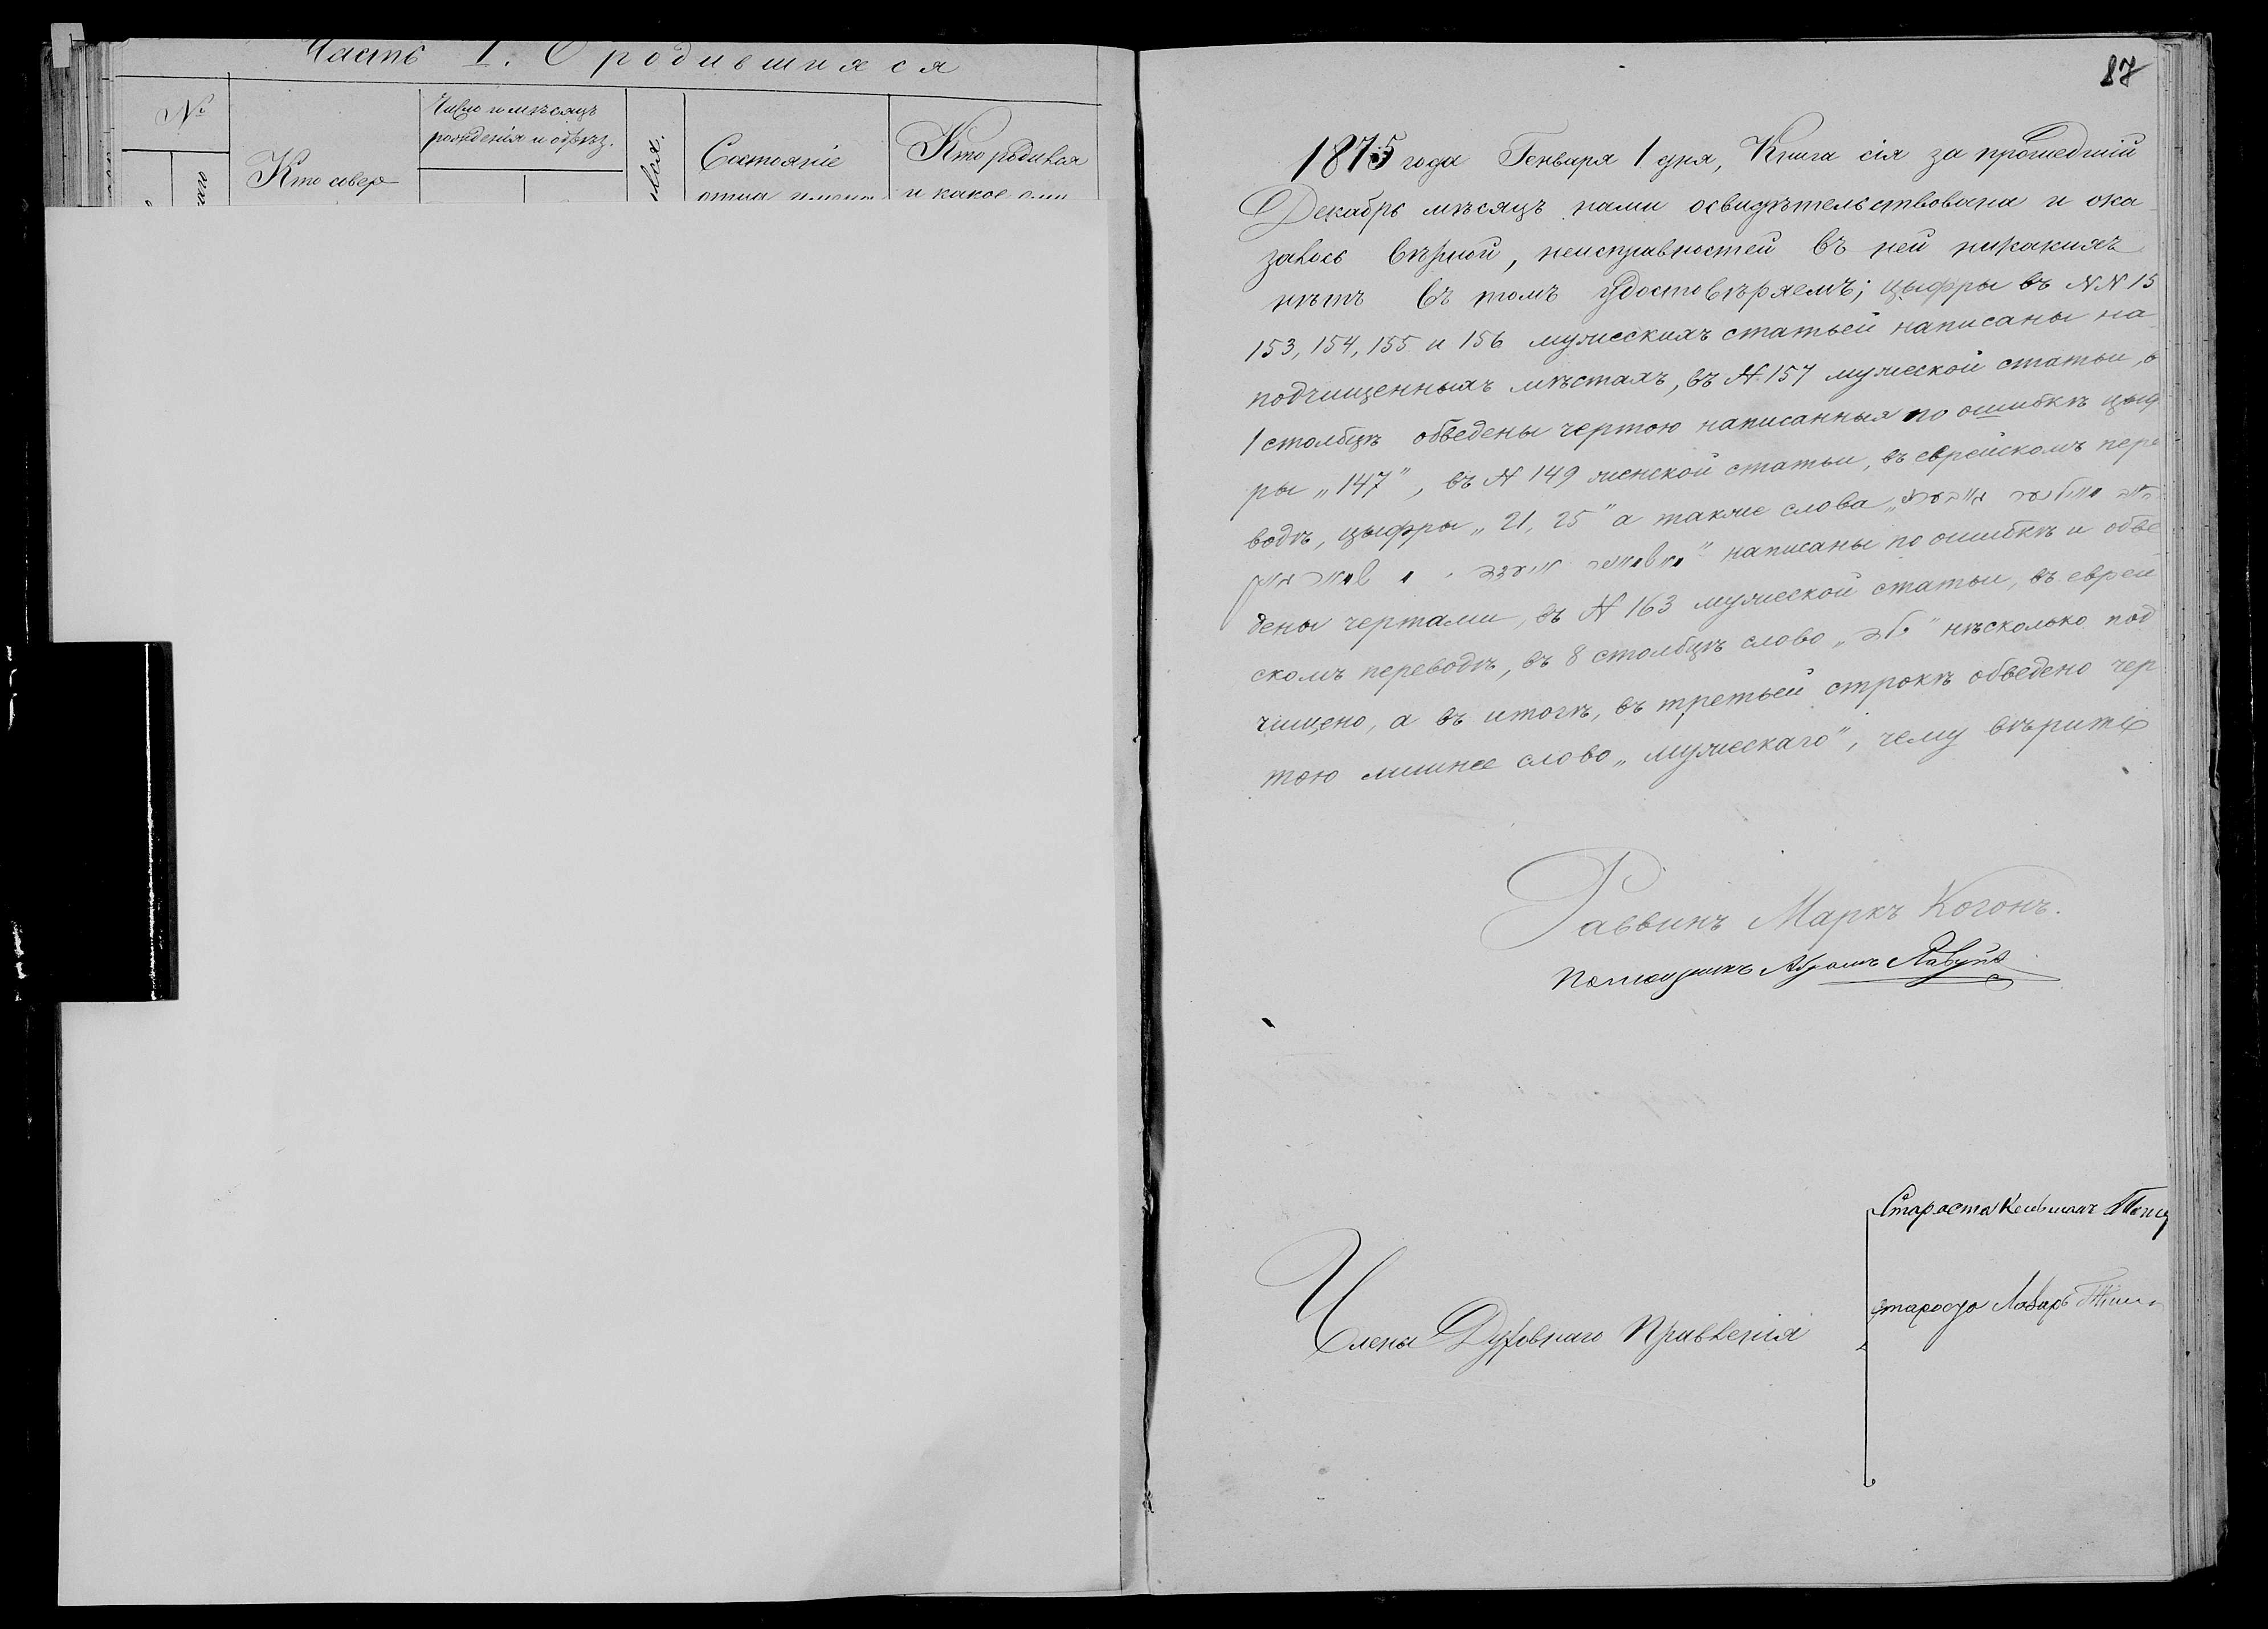 Часть I. О родившихся
№
Число и мѣсяцъ
рожденія и обрѣз.
Кто совер
Состояніе
отца имена
Кто родился
и какое ему
87
1875 года Генваря 1 дня, Книга сія за прошедшій
Декабрь мѣсяцъ нами освидѣтельствована и ока
залось вѣрной, неисправностей въ ней никакихъ
нѣтъ въ томъ удостовѣряемъ; цыфры въ NN 15
153, 154, 155 и 156 мужескихъ статьей написаны на
подчищенныхъ мѣстахъ, въ N 157 мужеской статьи, в
1 столбцѣ обведены чертою написанныя по ошибкѣ цыф
ры „147", въ N 149 женской статьи, въ еврейскомъ пере
водѣ, цыфры „21, 25" а также слова
написаны по ошибкѣ и обве
дены чертами, въ N 163 мужеской статьи, въ еврей
скомъ переводѣ, въ 8 столбцѣ слово нѣсколько под
чищено, а въ итогѣ, въ третьей строкѣ обведено чер
тою лишнее слово „мужескаго", чему вѣрить
Раввинъ Маркъ Когонъ.
Помощникъ Абрамъ
Староста
староста Лазарь
Члены Духовнаго Правленія